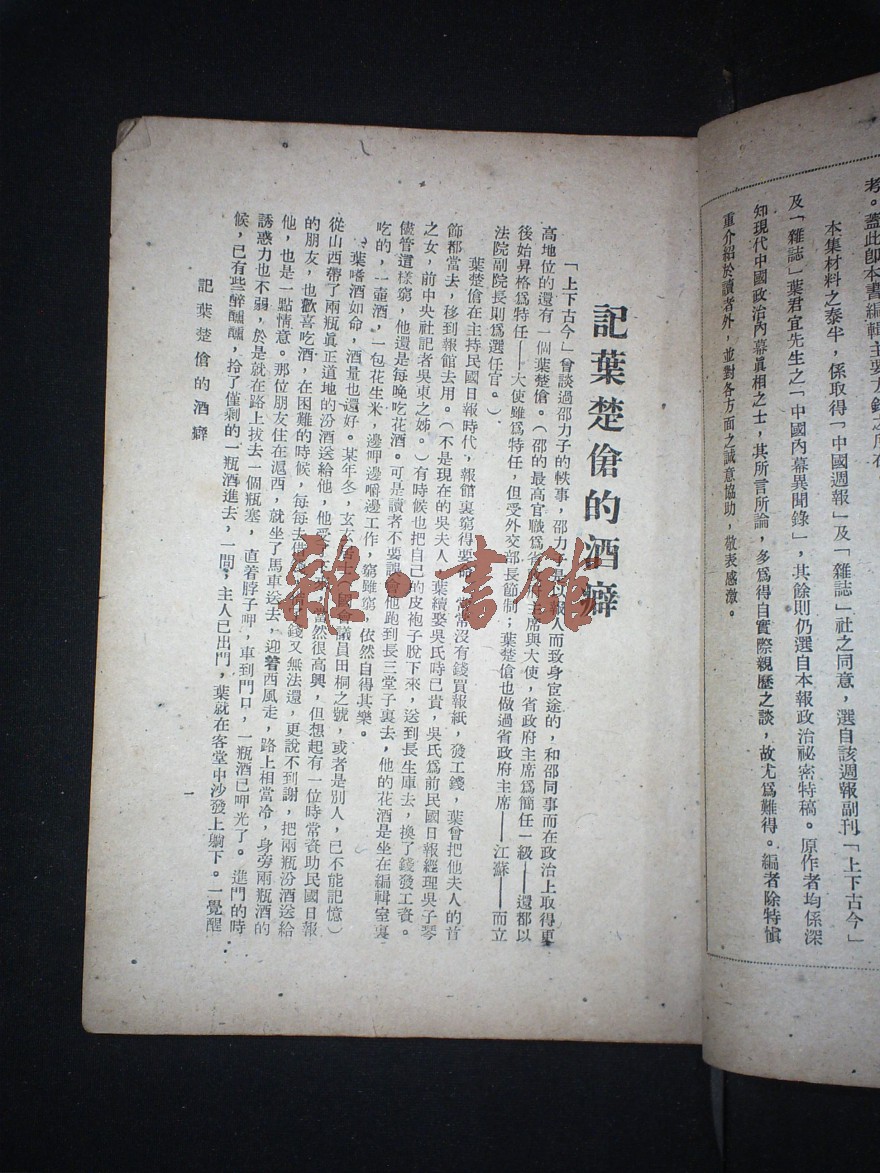 考。蓋此卽本書編輯主要
本集材料之泰半，係取得「中國週報」及「雜誌」社之同意，選自該週報副刊「上下古今」
及「雜誌」葉君宜先生之「中國內幕異聞錄」，其餘則仍選自本報政治祕密特稿。原作者均係深
知現代中國政治內幕眞相之士，其所言所論，多爲得自實際親歷之談，故尤爲難得。編者除特愼
重介紹於讀者外，並對各方面之誠意協助，敬表感激。
記葉楚傖的酒癖
「上下古今」曾談過邵力子的軼事，邵力 報人而致身宦途的，和邵同事而在政治上取得更
高地位的還有一個葉楚傖。（邵的最高官職爲省 主席與大使，省政府主席爲簡任一級——還都以
後始昇格爲特任——大使雖爲特任，但受外交部長節制；葉楚傖也做過省政府主席——江蘇——而立
法院副院長則爲選任官。）
葉楚傖在主持民國日報時代，報館裏窮得要命，常常沒有錢買報紙，發工錢，葉曾把他夫人的首
飾都當去，移到報館去用。（不是現在的吳夫人，葉續娶吳氏時已貴，吳氏爲前民國日報經理吳子琴
之女，前中央社記者吳東之姊。）有時候也把自己的皮袍子脫下來，送到長生庫去，換了錢發工資。
儘管這樣窮，他還是每晚吃花酒。可是讀者不要誤會他跑到長三堂子裏去，他的花酒是坐在編輯室裏
吃的，一壺酒，一包花生米，邊呷邊嚼邊工作，窮雖窮，依然自得其樂。
葉嗜酒如命，酒量也還好。某年冬，玄玄居士（國會議員田桐之號，或者是別人，已不能記憶）
從山西帶了兩瓶眞正道地的汾酒送給他，他受 當然很高興，但想起有一位時常資助民國日報
的朋友，也歡喜吃酒，在困難的時候，每每去借 錢又無法還，更說不到謝，把兩瓶汾酒送給
他，也是一點情意。那位朋友住在滬西，就坐了馬車送去，迎着西風走，路上相當冷，身旁兩瓶酒的
誘惑力也不弱，於是就在路上拔去一個瓶塞，直着脖子呷，車到門口，一瓶酒已呷光了。進門的時
候，已有些醉醺醺，拎了僅剩的一瓶酒進去，一問，主人已出門，葉就在客堂中沙發上躺下。一覺醒
記葉楚傖的酒癖
一
雜·書館